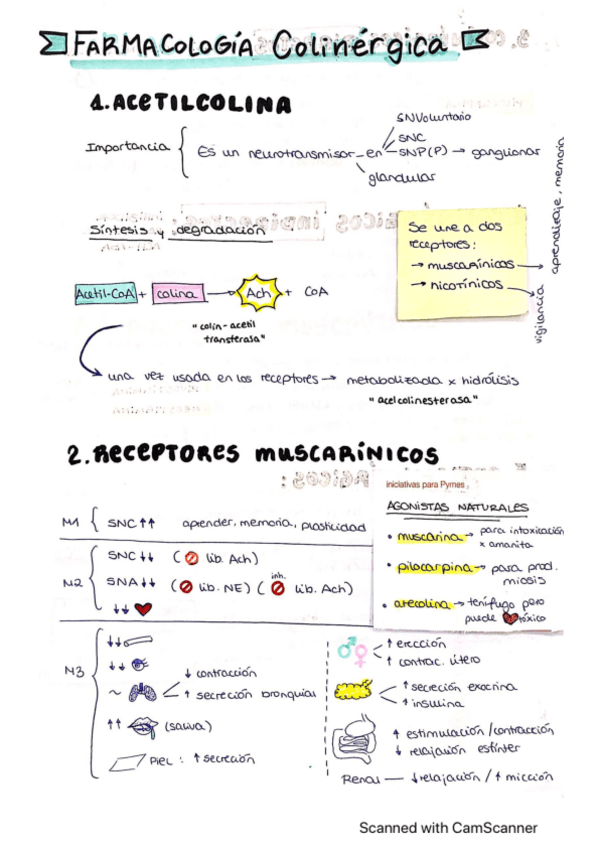 FARMACOLOGÍA Colinérgica
1. ACETILCOLINA
SNVoluntario
SNC
Importancia { Es un neurotransmisor en SNP(P) → ganglionar
glandular
Síntesis y degradación
Se une a dos
receptores:
→ muscarínicos → aprendizaje, memoria
→ nicotínicos → vigilancia
Acetil-CoA + colina → Ach + CoA
"colin-acetil
transferasa"
una vez usada en los receptores → metabolizada x hidrólisis
"acelcolinesterasa"
2. Receptores muscarínicos
iniciativas para Pymes
AGONISTAS NATURALES
• muscarina → para intoxicación
x amanita
• pilocarpina → para prod.
miosis
• arecolina → tenífugo pero
puede tóxico
M1 { SNC ↑↑ aprender, memoria, plasticidad
M2 { SNC ↓↓ ( lib. Ach)
SNA ↓↓ ( lib. NE) ( inh. lib. Ach)
↓↓
M3 { ↓↓
↓↓
~ ↓ contracción
↑ secreción bronquial
↑↑ (saliva)
Piel : ↑ secreción
↑ erección
↑ contrac. útero
↑ secreción exocrina
↑ insulina
↑ estimulación / contracción
↓ relajación esfínter
Renal — ↓ relajación / ↑ micción
Scanned with CamScanner